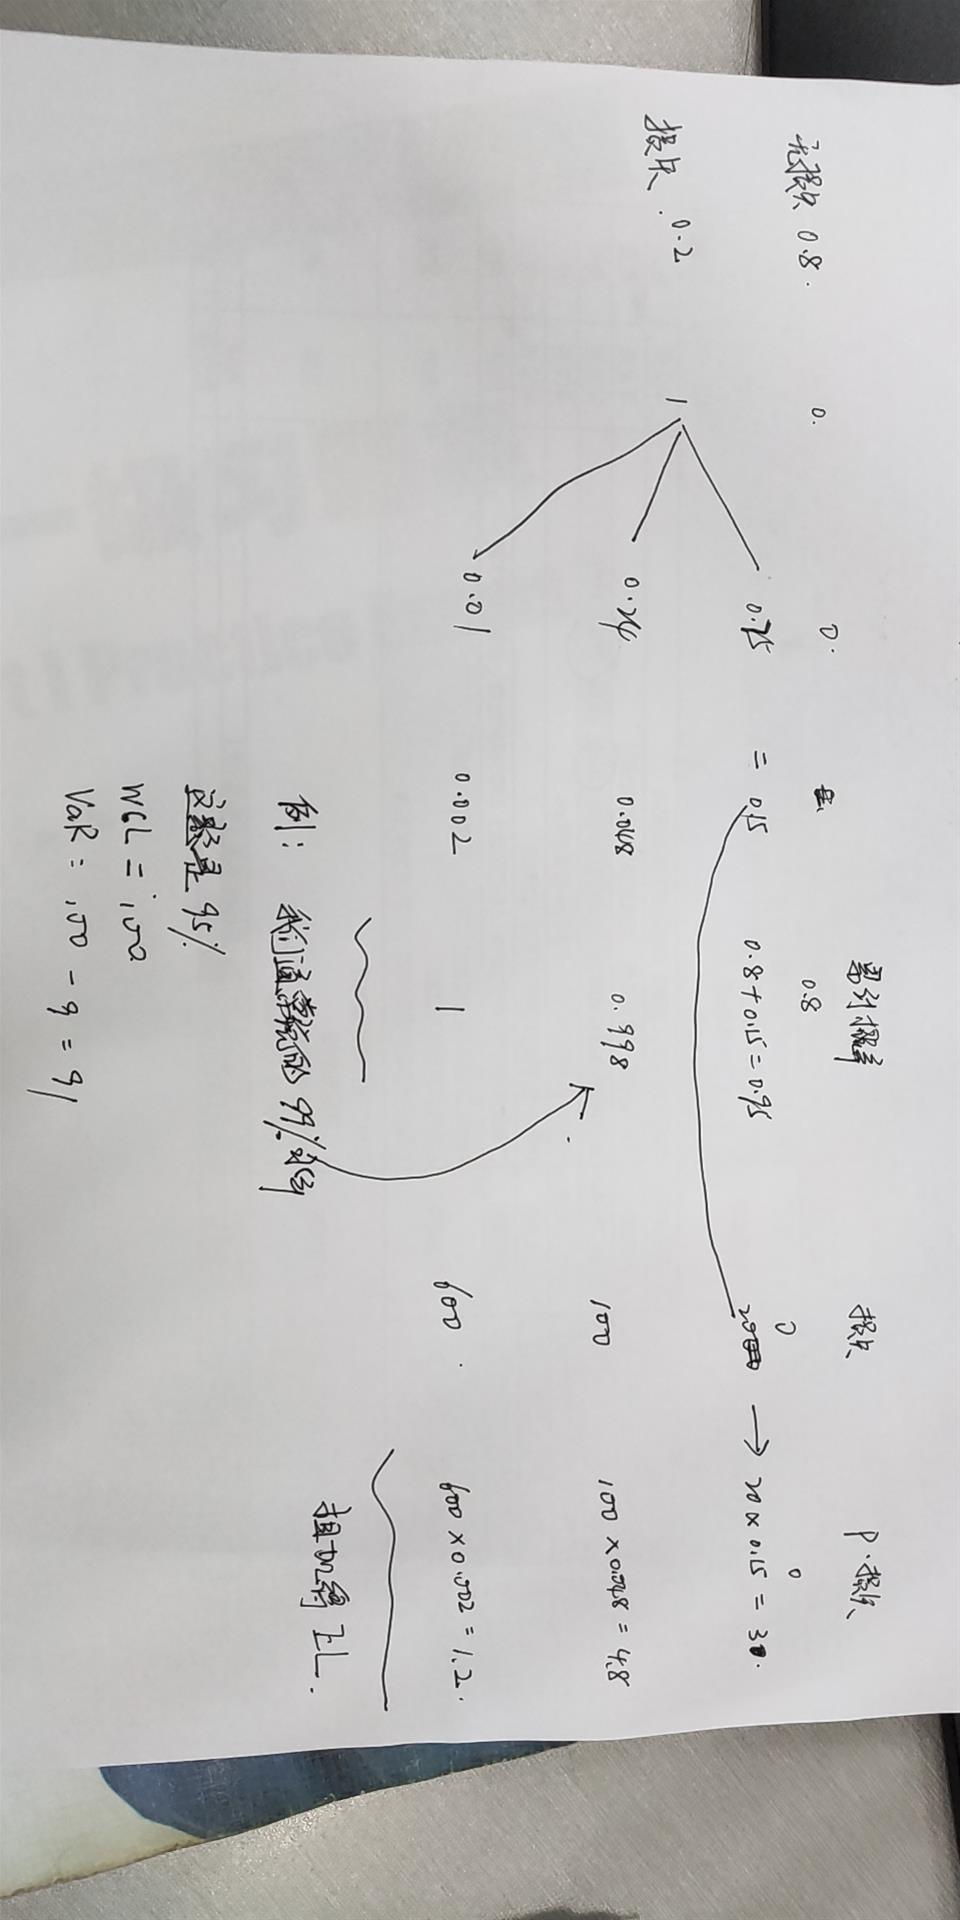 累积概率 损失 P·损失
无损失 0.8. 0. 0. 0.8 0 0
0.75 = 0.15 0.8+0.15=0.95 20 → 20×0.15=3.
损失 0.2 1
0.24 0.048 0.998 100 100×0.048=4.8
0.01 0.002 1 600. 600×0.002=1.2.
相加得 EL.
例: 我们通常说的 99%水平
是 95%
WCL = 100
VaR = 100 - 9 = 91